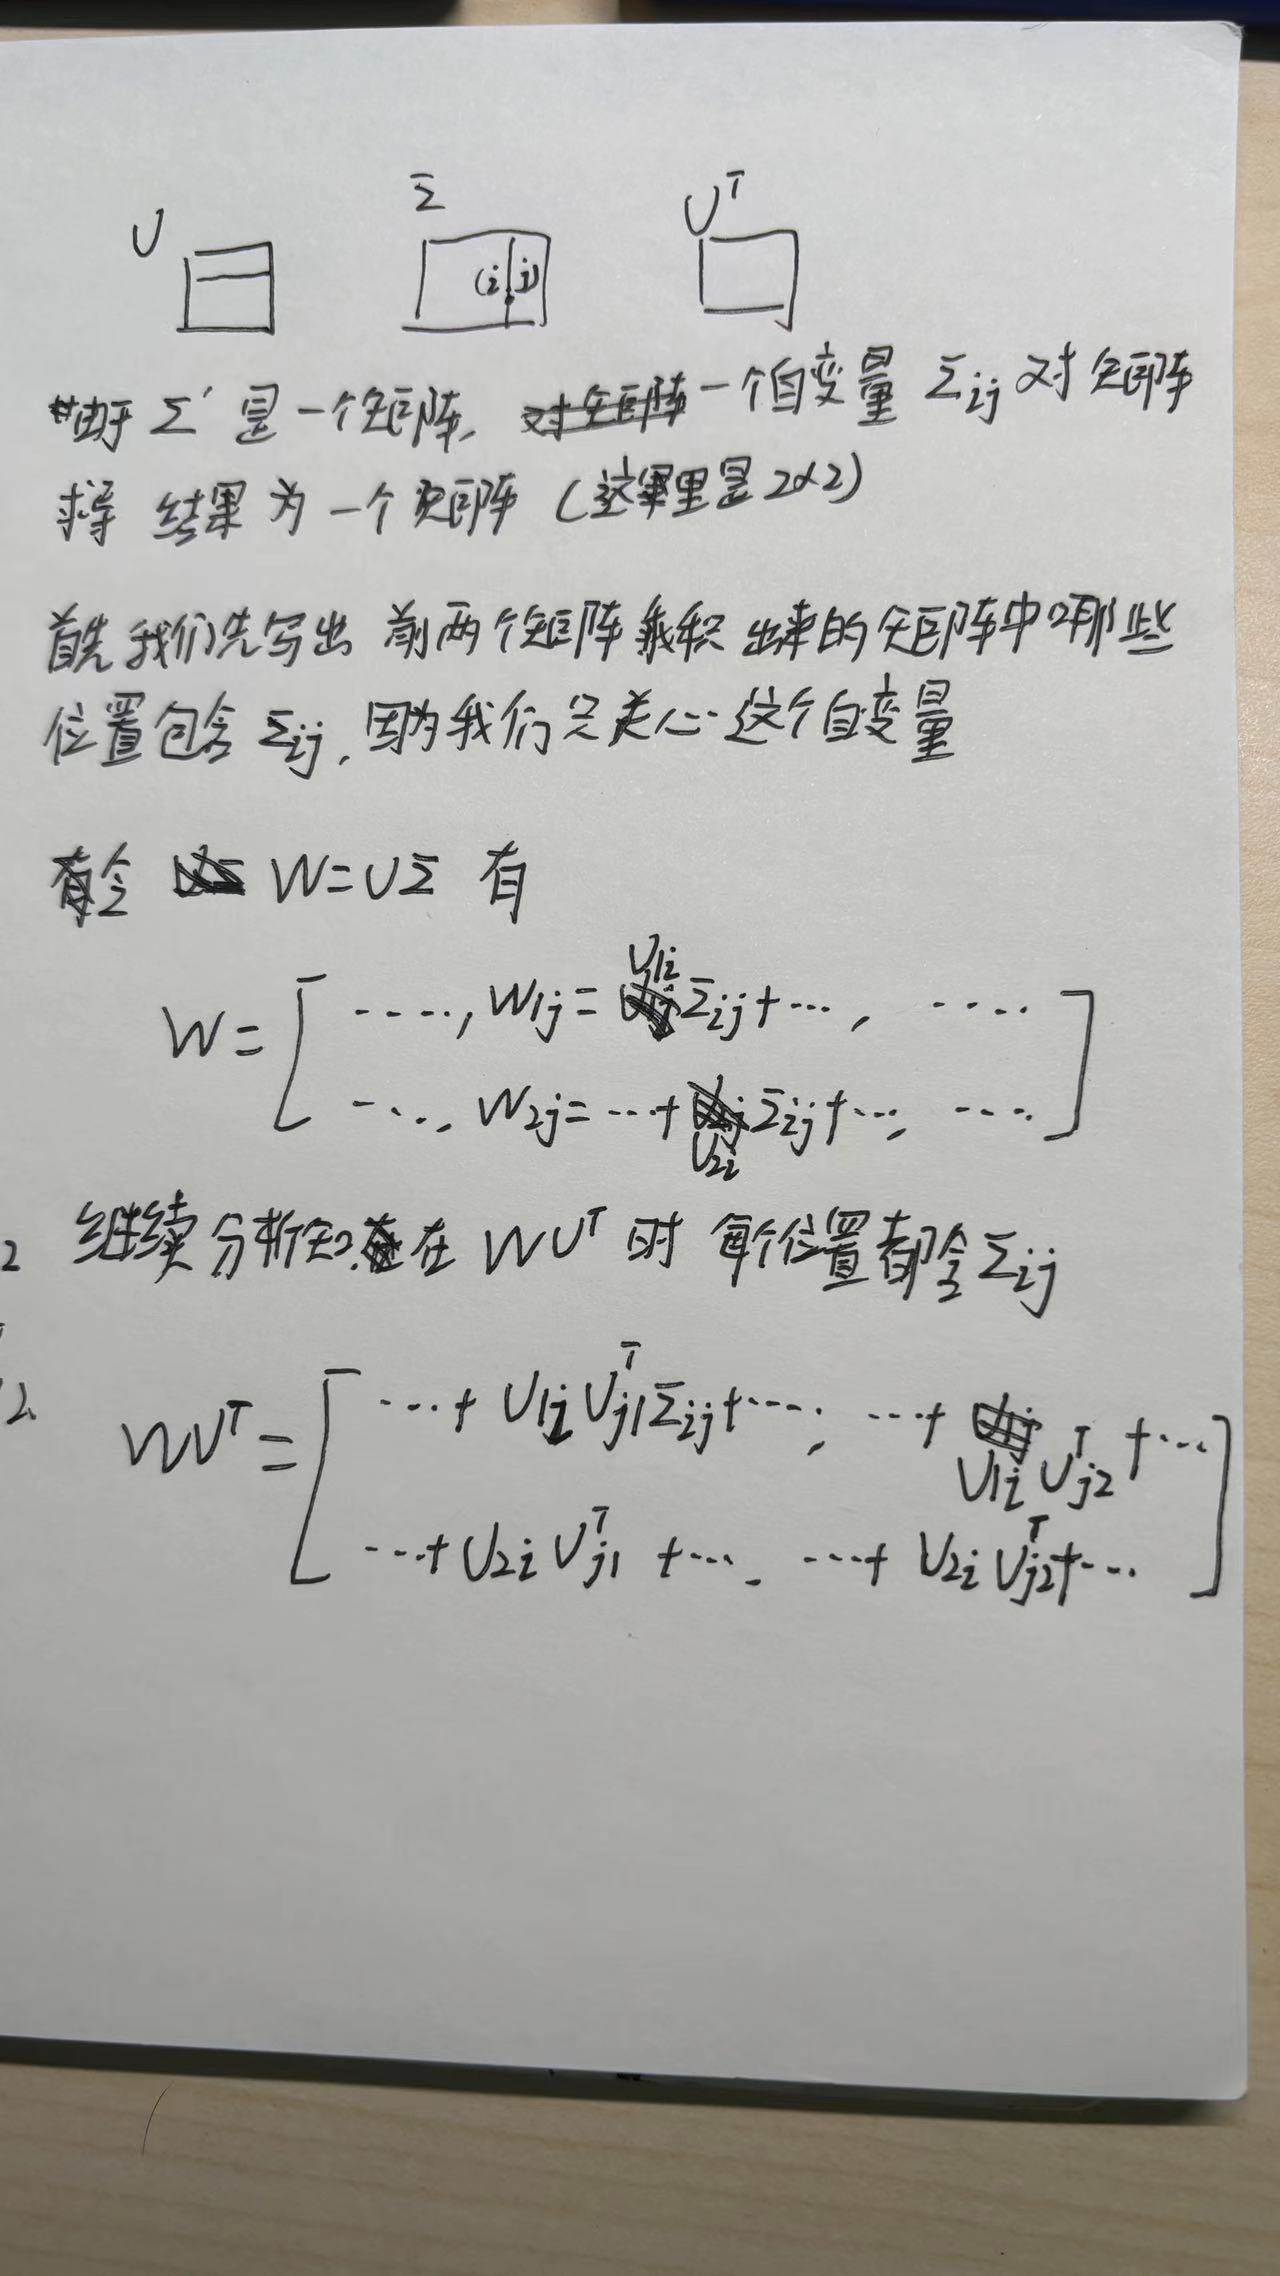 U Σ U^T
(i j)
由于 Σ' 是一个矩阵, 一个自变量 Σij 对矩阵
求导 结果为一个矩阵 (这里是 2×2)
首先我们先写出 前两个矩阵乘积出来的矩阵中哪些
位置包含 Σij, 因为我们只关心这个自变量
令 W=UΣ 有
W= [ ····, W1j = U1i Σij+···, ····
···, W2j=···+ U2i Σij+···, ···· ]
2 继续分析知 在 WU^T 时 每个位置都含 Σij
2
WU^T = [ ···+ U1i U^Tj1 Σij+····, ···+ U1i U^Tj2 +···
···+ U2i U^Tj1 +···, ···+ U2i U^Tj2+··· ]